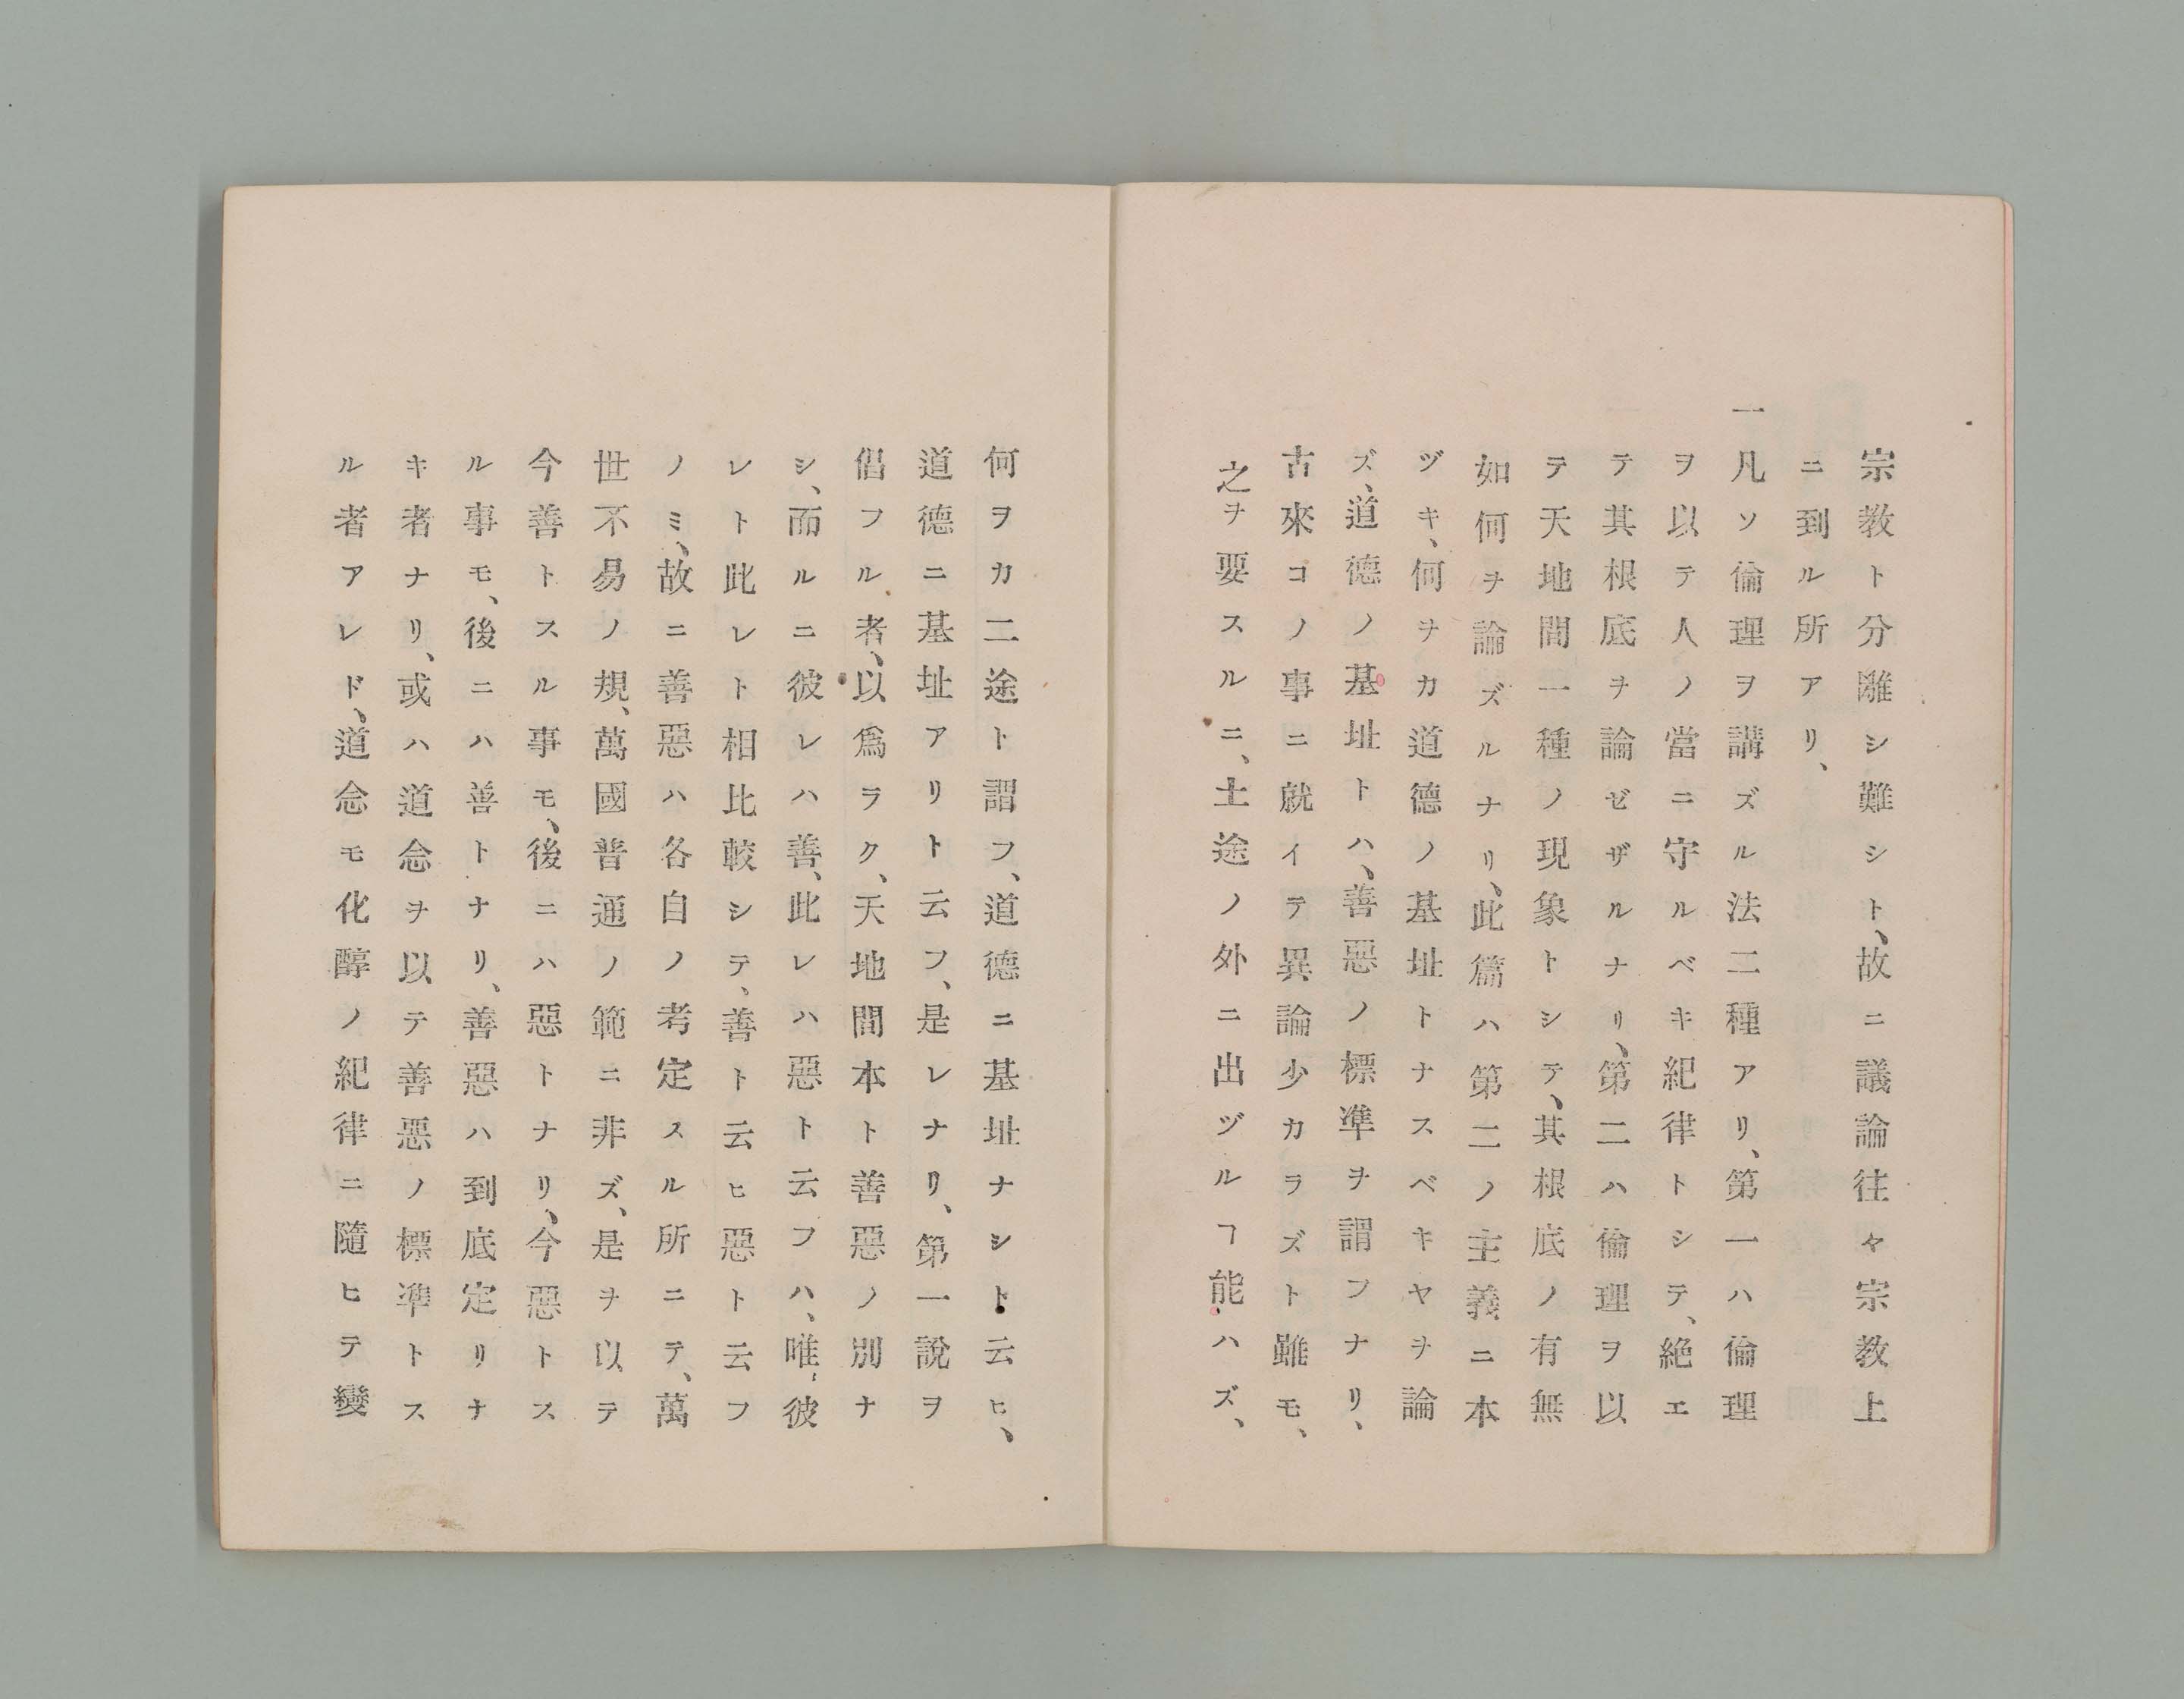 宗教ト分離シ難シト、故ニ議論往々宗教上
ニ到ル所アリ、
一凡ソ倫理ヲ講ズル法二種アリ、第一ハ倫理
ヲ以テ人ノ當ニ守ルベキ紀律トシテ、絶エ
テ其根底ヲ論ゼザルナリ、第二ハ倫理ヲ以
テ天地間一種ノ現象トシテ、其根底ノ有無
如何ヲ論ズルナリ、此篇ハ第二ノ主義ニ本
ヅキ、何ヲカ道德ノ基址トナスベキヤヲ論
ズ、道德ノ基址トハ、善惡ノ標準ヲ謂フナリ、
古來コノ事ニ就イテ異論少カラズト雖モ、
之ヲ要スルニ、土途ノ外ニ出ヅルヿ能ハズ、
何ヲカ二途ト謂フ、道德ニ基址ナシト云ヒ、
道德ニ基址アリト云フ、是レナリ、第一說ヲ
倡フル者、以爲ラク、天地間本ト善惡ノ別ナ
シ、而ルニ彼レハ善、此レハ惡ト云フハ、唯彼
レト此レト相比較シテ、善ト云ヒ惡ト云フ
ノミ、故ニ善惡ハ各自ノ考定スル所ニテ、萬
世不易ノ規、萬國普通ノ範ニ非ズ、是ヲ以テ
今善トスル事モ、後ニハ惡トナリ、今惡トス
ル事モ、後ニハ善トナリ、善惡ハ到底定リナ
キ者ナリ、或ハ道念ヲ以テ善惡ノ標準トス
ル者アレド、道念モ化醇ノ紀律ニ隨ヒテ變